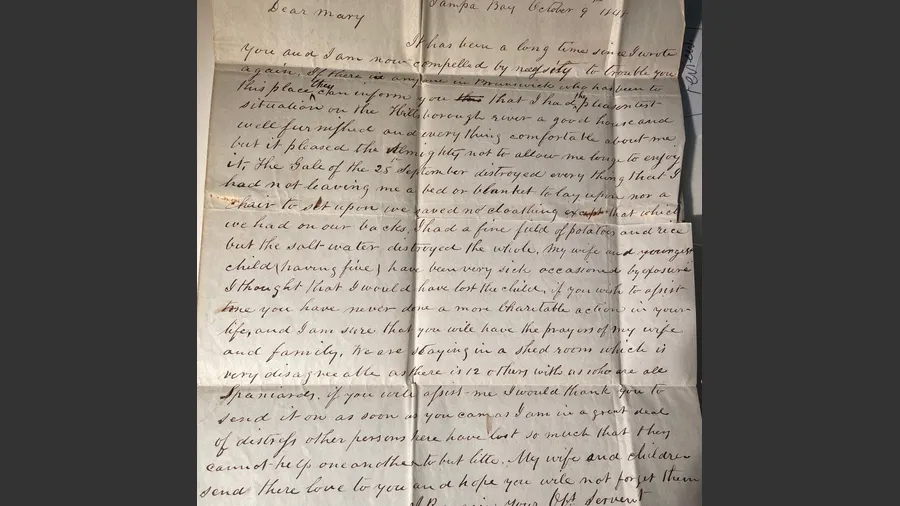 Tampa Bay October 9th 1848
Dear Mary
It has been a long time since I wrote
you and I am now compelled by nessity to trouble you
again. If there is any one in Brunswick who has been to
this place they can inform you that I had the pleasentest
situation on the Hillsborough river a good house and
well furnished and everything comfortable about me
but it pleased the Almighty not to allow me longe to enjoy
it, The Gale of the 25th September destroyed every thing that I
had not leaving me a bed or blanket to lay upon nor a
chair to set upon we saved no cloathing except that which
we had on our backs, I had a fine field of potatoes and rice
but the salt water destroyed the whole. My wife and youngest
child (having five) have been very sick occasioned by exosure
I thought that I would have lost the child, if you wish to assist
me you have never done a more Charitable action in your
life, and I am sure that you will have the prayers of my wife
and family, We are staying in a shed room which is
very disagreeable as there is 12 others with us who are all
Spaniards. if you will assist me I would thank you to
send it on as soon as you can as I am in a great deal
of distress other persons here have lost so much that they
cannot help one another to but litte. My wife and children
send there love to you and hope you will not forget them
I Remain your Obt Servent